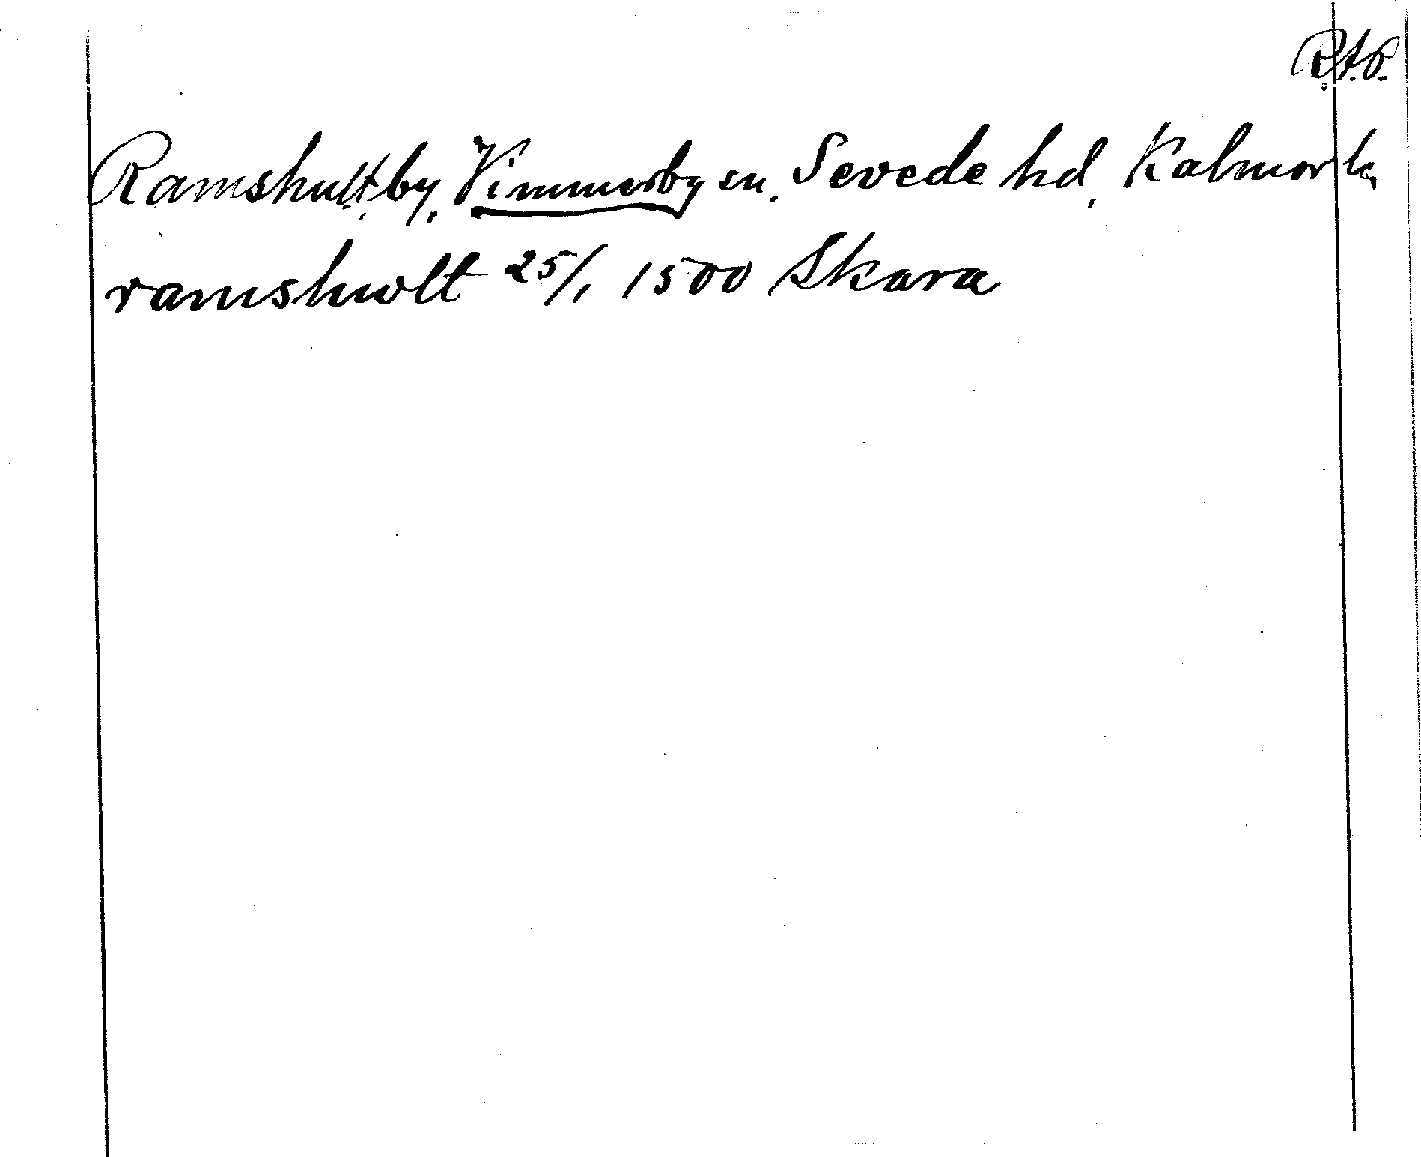 R.A.P.
Ramshult, by, Vimmerby sn. Sevede hd, Kalmar l.
ramshwlt 25/1 1500 Skara